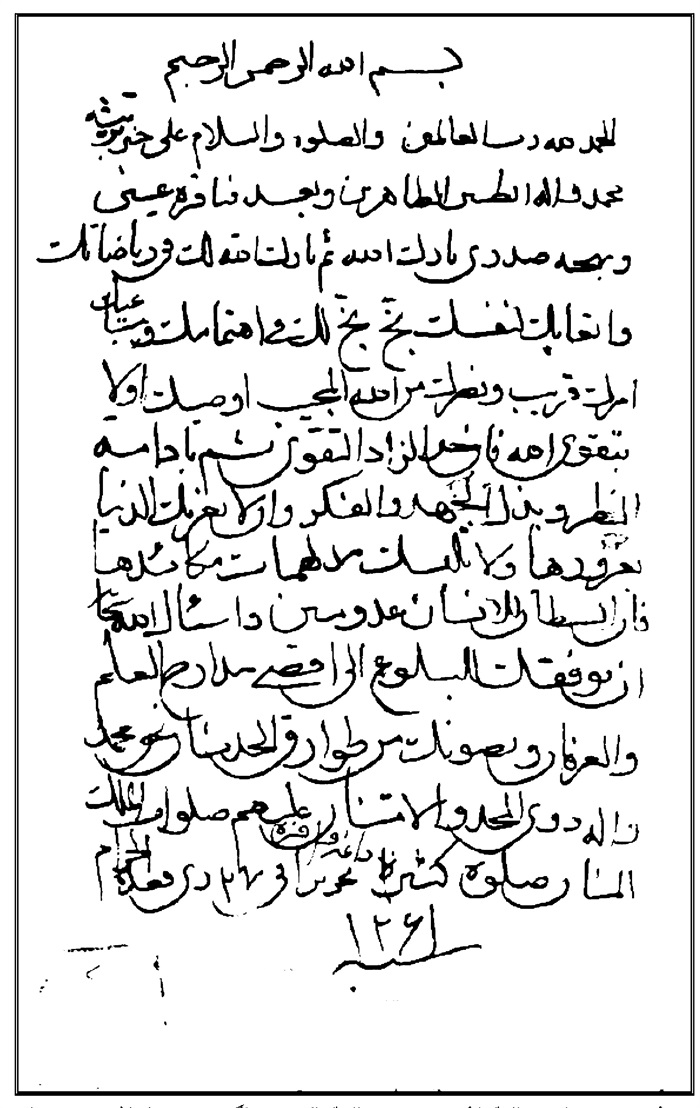 بسم الله الرحمن الرحيم
الحمد لله رب العالمين والصلوة والسلام على خير بريته
محمد واله الطيبين الطاهرين وبعد فيا قرة عيني
وبهجة صدري بارك الله ثم بارك الله لك في رياضاتك
واتعابك لنفسك بخ بخ لك في اهتمامك
امرك قريب ونظرك من الله المجيب اوصيك اولا
بتقوى الله فان خير الزاد التقوى ثم بادامة
النظر وبذل الجهد والفكر وان لا يغرنك الدنيا
بغرورها ولا مكائدها
فان الشيطان للانسان عدو مبين واسئال الله
ان يوفقك للبلوغ الى اقصى مدارج العلم
والعرفان ويصونك من طوارق الحدثان بحق محمد
واله ذوي المجد والامتنان عليهم صلوات الملك
المنان صلوة كثيرة تحريرا في ذي قعدة الحرام
سنه ١٢٦١